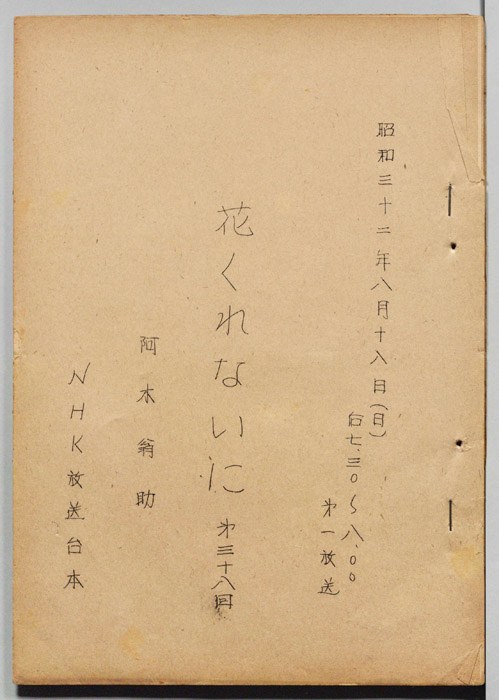 昭和三十二年八月十八日(日)
后七.三〇〜八.〇〇
才一放送
花くれないに 才三十八回
阿木翁助
NHK放送台本